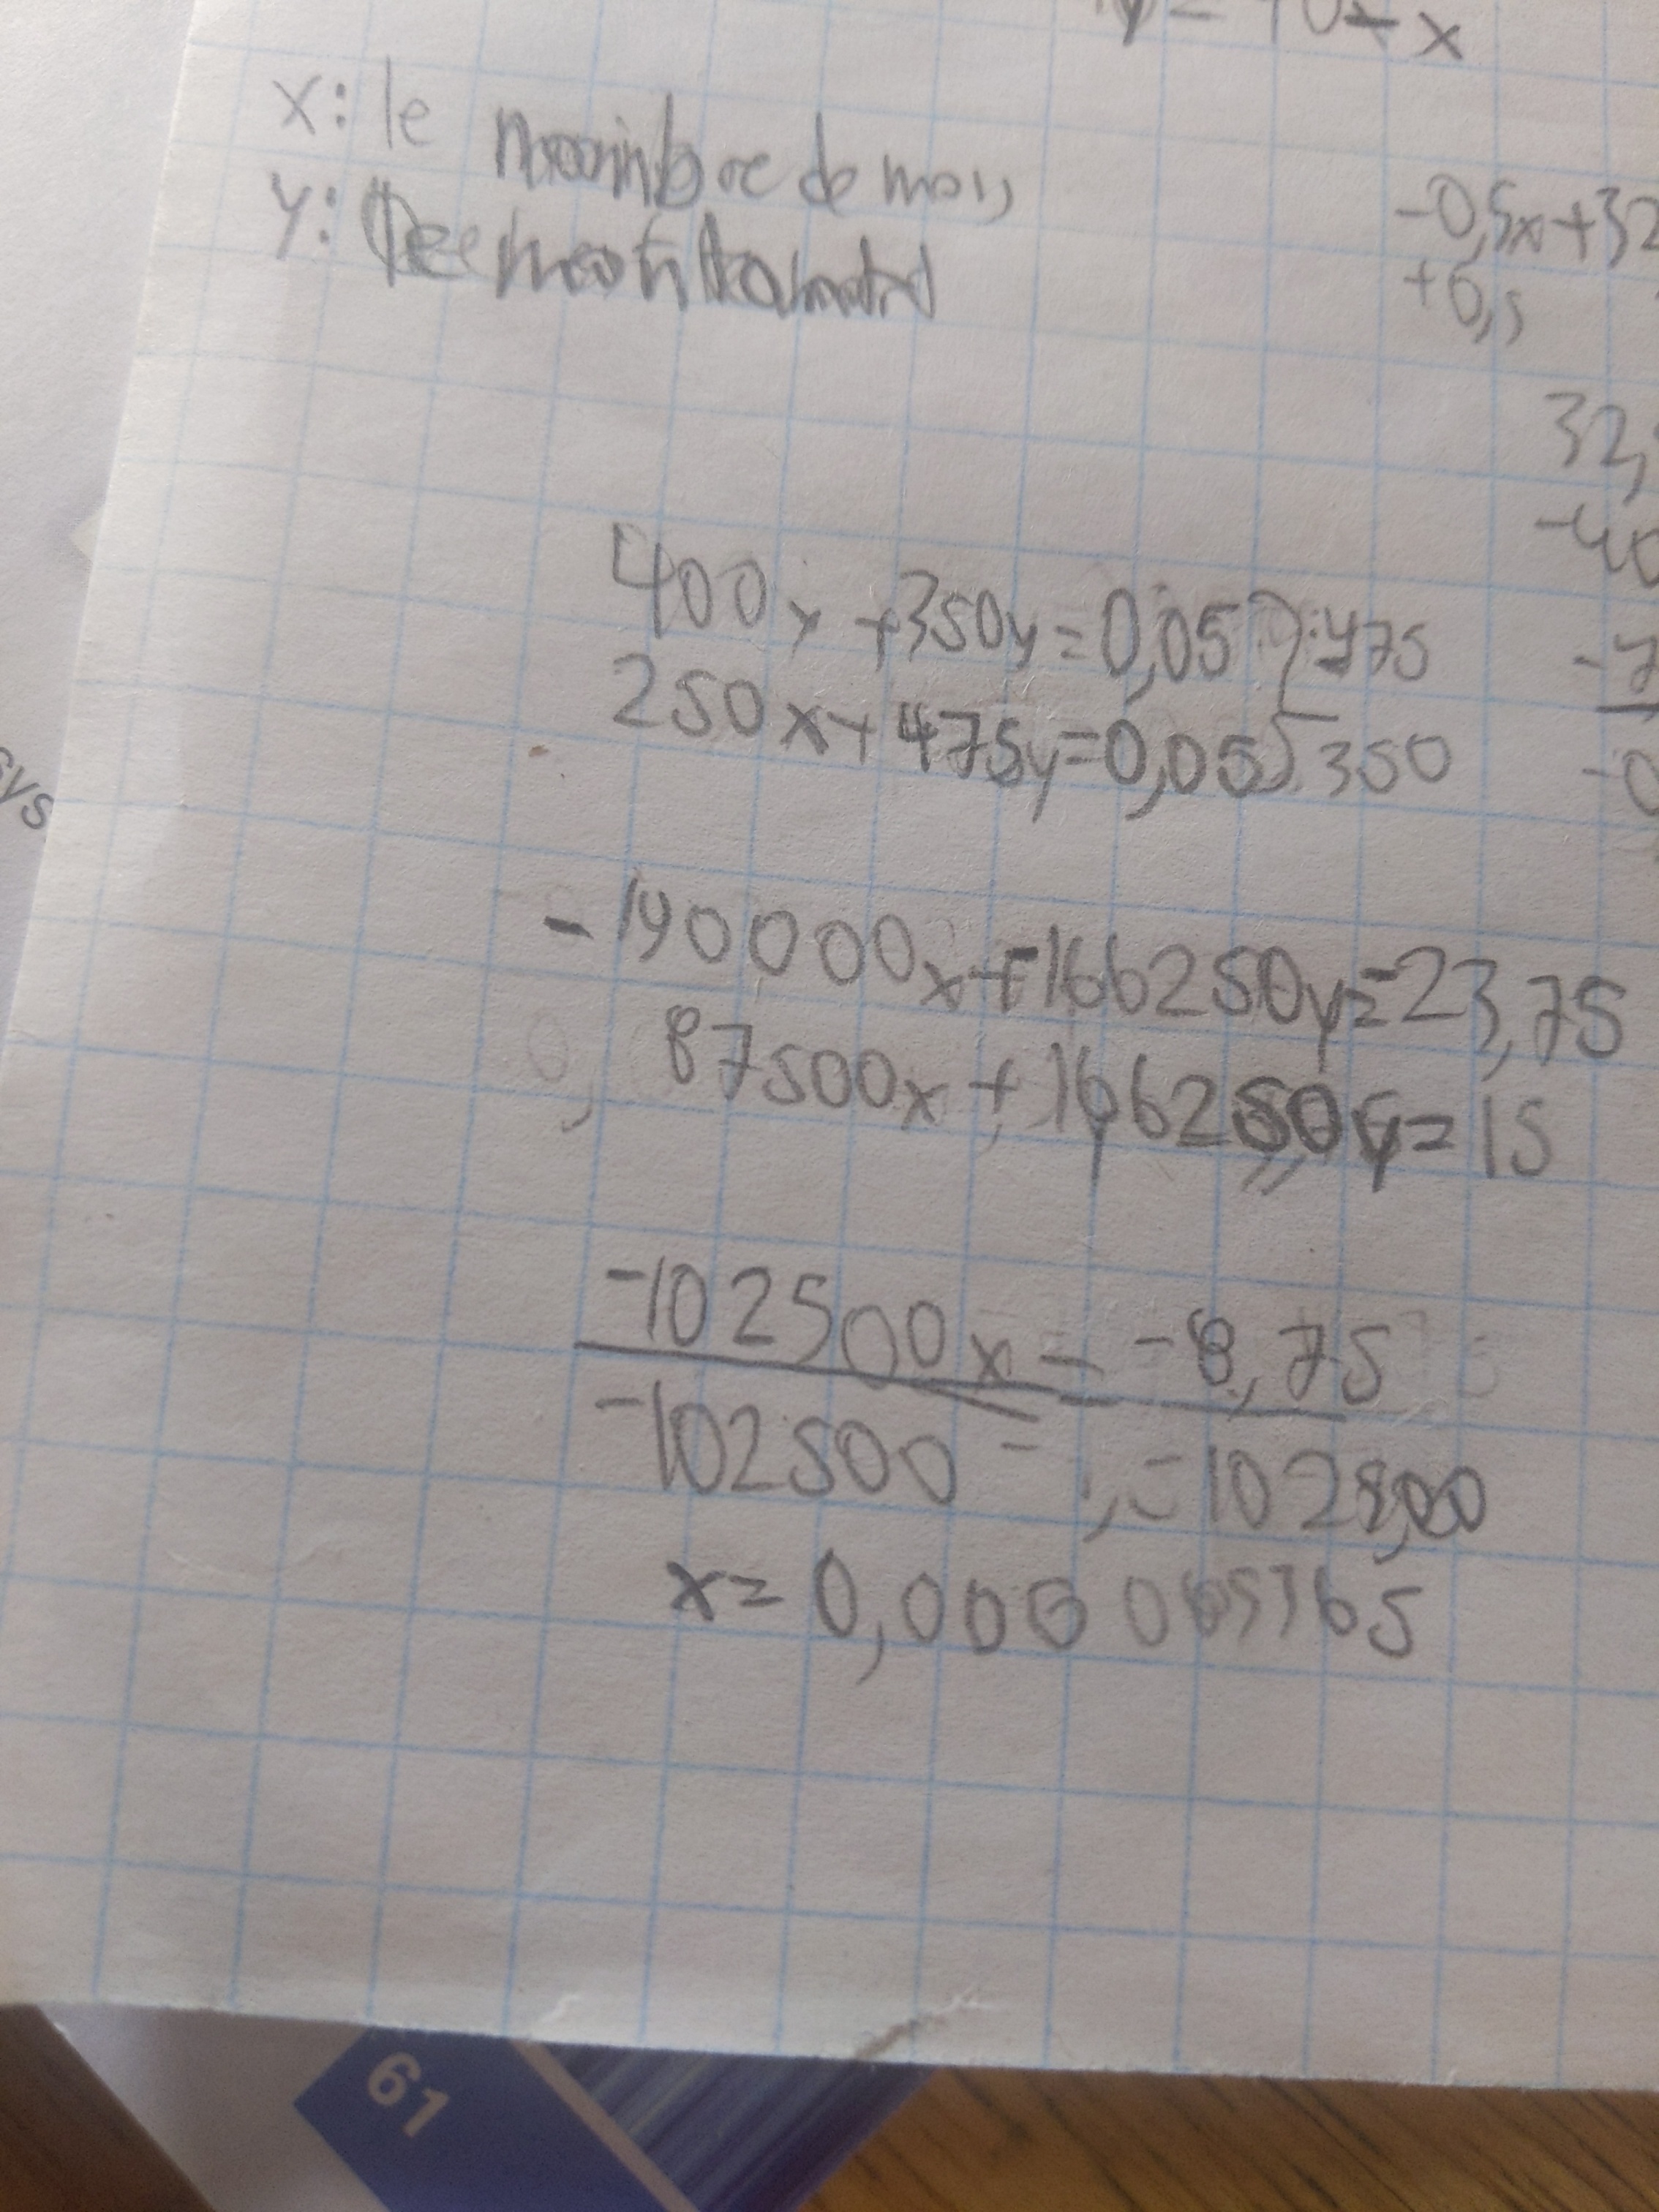 y = 40 + x
x: le nombre de mois
y: le montant
-0,5x+32
+0,5
32,
-40
400x +350y=0,05).-475
250x+475y=0,05).350
-7
-0
sys
-190000x+-166250y=-23,75
87500x + 166250y=15
-102500x = -8,75
-102500 = -102500
x= 0,000
61